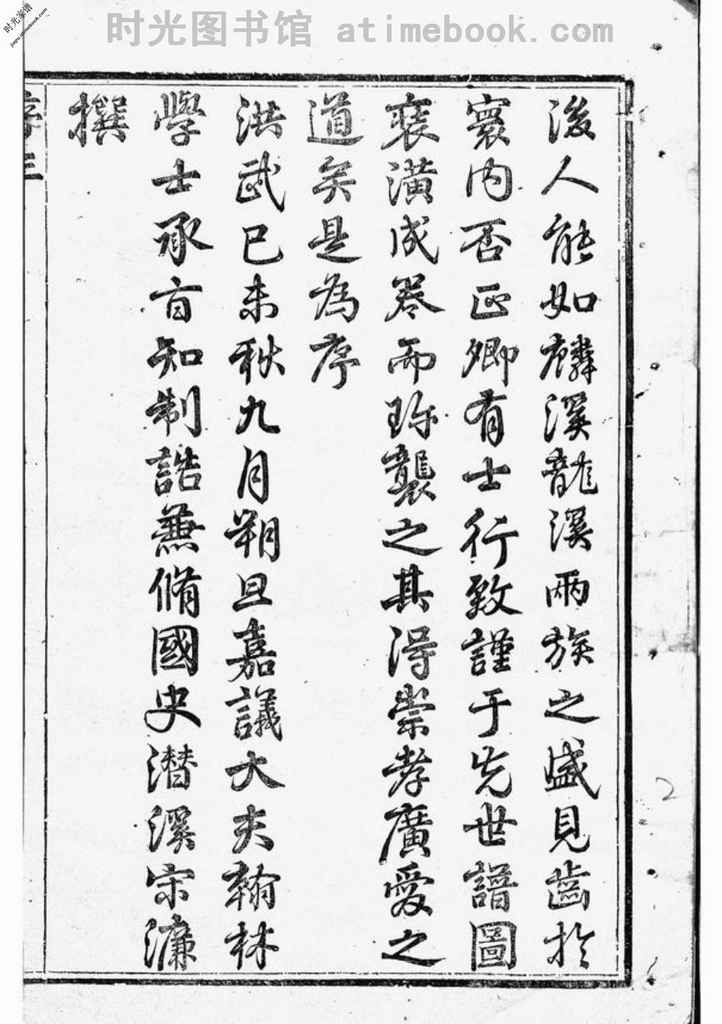 时光图书馆 atimebook.com
时光家谱
jiapu.atimebook.com
後人能如麟溪龍溪兩族之盛見齒於
寰内否正卿有士行致謹于先世譜圖
裒潢成卷而珎襲之其得崇孝廣愛之
道矣是為序
洪武己未秋九月朔旦嘉議大夫翰林
學士承旨知制誥兼脩國史潜溪宋濂
撰